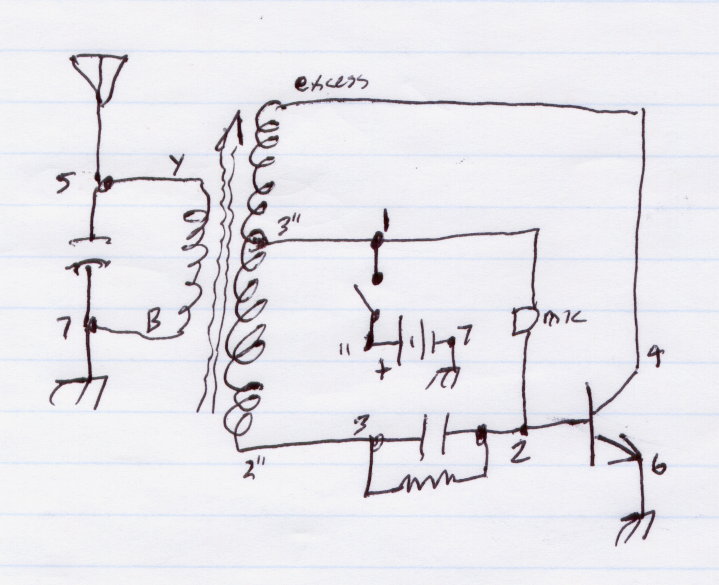 excess
Y
5
3"
1
B
7
MIC
11
+
7
4
3
2
2"
6